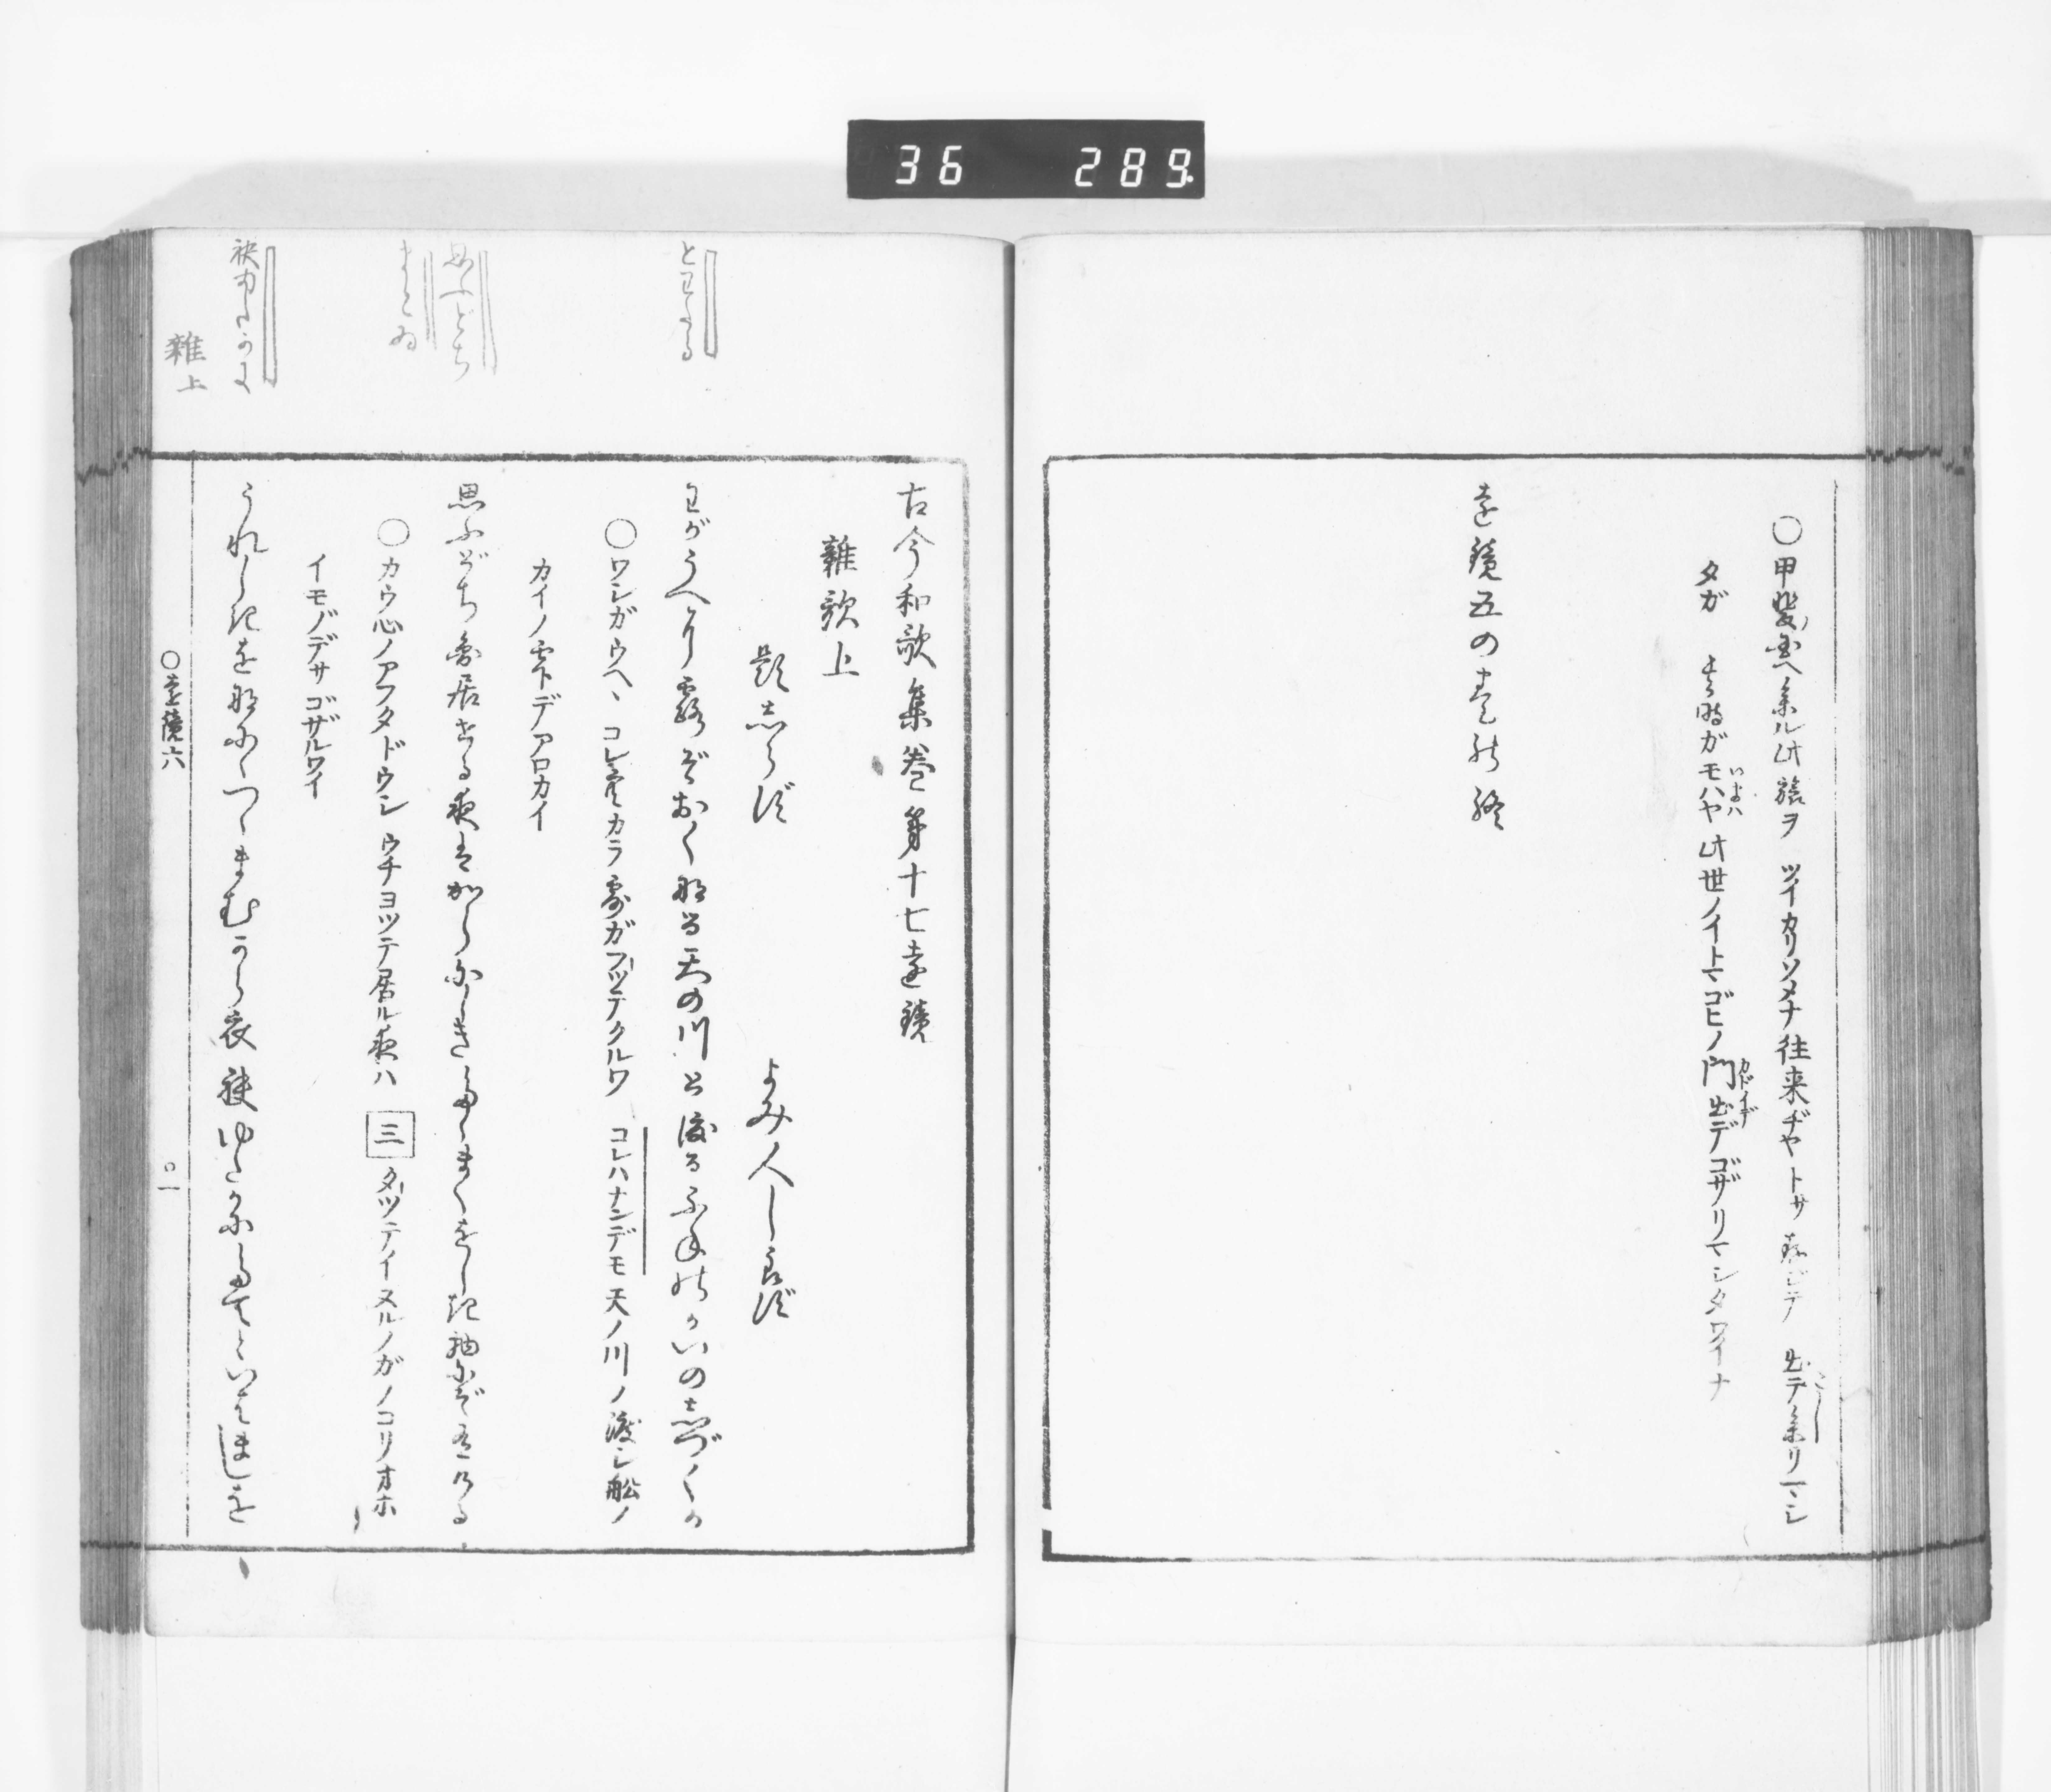 36 289
〇甲斐ノ国ヘ参ル此旅ヲ ツイカリソメナ往来ヂヤトサ 存ジテ 出テ参リマシ
タガ よる時ガモハヤ此世ノイトマゴヒノ門出デゴザリマシタワイナ
いまハ
カドイデ
こし
遠鏡五の巻終
古今和歌集巻第十七遠鏡
雑歌上
題志らず よみ人し良ず
わがうへに露ぞおく那る天の川と渡るふねのかいの志づくか
〇ワシガウヘヽ コレ空カラ露ガフツテクルワ コレハナンデモ天ノ川ノ渡シ舩ノ
カイノ雫デアロカイ
思ふどち円居せる夜はからにしきたゝまくをしき物にぞ有ける
〇カウ心ノアフタドウシ ウチヨツテ居ル夜ハ 三 タツテイヌルノガノコリオホ
イモノデサゴザルワイ
うれしきを何につゝまむから衣袂ゆたかにたてといはましを
とわたる
思ふどち
まとゐ
袂ゆたかに
雑上
〇遠鏡六
〇一